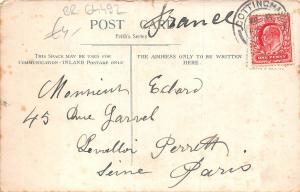 CR Ch492
£4/-
POST CARD
France
Frith's Series
COTTINGHAM
THIS SPACE MAY BE USED FOR
COMMUNICATION-INLAND POSTAGE ONLY
THE ADDRESS ONLY TO BE WRITTEN
HERE
ONE PENNY
Monsieur Echard
45 Rue
Levallois Perrett
Seine Paris